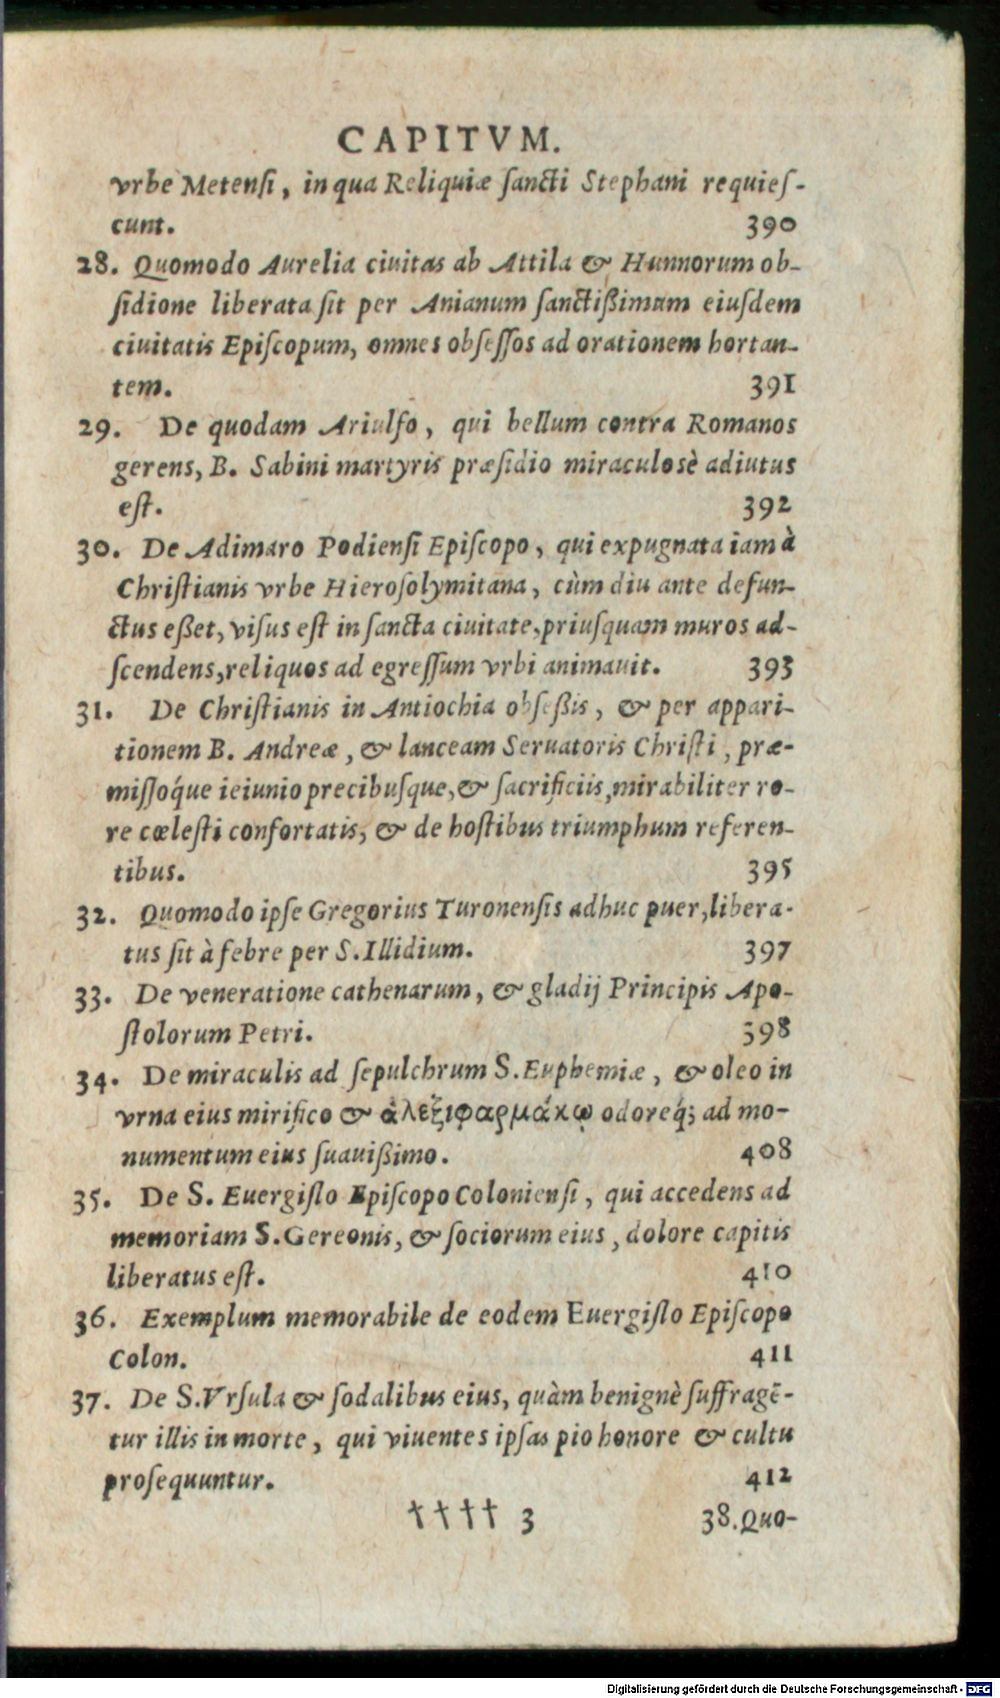 CAPITVM.
vrbe Metenſi, in qua Reliquiæ ſancti Stephani requieſ-
cunt. 390
28. Quomodo Aurelia ciuitas ab Attila & Hunnorum ob-
ſidione liberata ſit per Anianum ſanctißimum eiuſdem
ciuitatis Epiſcopum, omnes obſeſſos ad orationem hortan-
tem. 391
29. De quodam Ariulfo, qui bellum contra Romanos
gerens, B. Sabini martyris præſidio miraculosè adiutus
eſt. 392
30. De Adimaro Podienſi Epiſcopo, qui expugnata iam à
Chriſtianis vrbe Hieroſolymitana, cùm diu ante defun-
ctus eßet, viſus eſt in ſancta ciuitate, priuſquam muros ad-
ſcendens, reliquos ad egreſſum vrbi animauit. 393
31. De Chriſtianis in Antiochia obſeßis, & per appari-
tionem B. Andreæ, & lanceam Seruatoris Chriſti, præ-
miſſoq́ue ieiunio precibuſque, & ſacrificiis, mirabiliter ro-
re cœleſti confortatis, & de hoſtibus triumphum referen-
tibus. 395
32. Quomodo ipſe Gregorius Turonenſis adhuc puer, libera-
tus ſit à febre per S. Illidium. 397
33. De veneratione cathenarum, & gladij Principis Apo-
ſtolorum Petri. 398
34. De miraculis ad ſepulchrum S. Euphemiæ, & oleo in
vrna eius mirifico & ἀλεξιφαρμάκῳ odoreq́; ad mo-
numentum eius ſuauißimo. 408
35. De S. Euergiſlo Epiſcopo Colonienſi, qui accedens ad
memoriam S. Gereonis, & ſociorum eius, dolore capitis
liberatus eſt. 410
36. Exemplum memorabile de eodem Euergiſlo Epiſcopo
Colon. 411
37. De S. Vrſula & ſodalibus eius, quàm benignè ſuffragē-
tur illis in morte, qui viuentes ipſas pio honore & cultu
proſequuntur. 412
†††† 3 38. Quo-
Digitalisierung gefördert durch die Deutsche Forschungsgemeinschaft - DFG